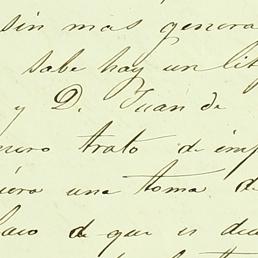 sin mas genera
sabe hay un lit
y D. Juan de
nero trato de imp
iera una toma de
de que es du